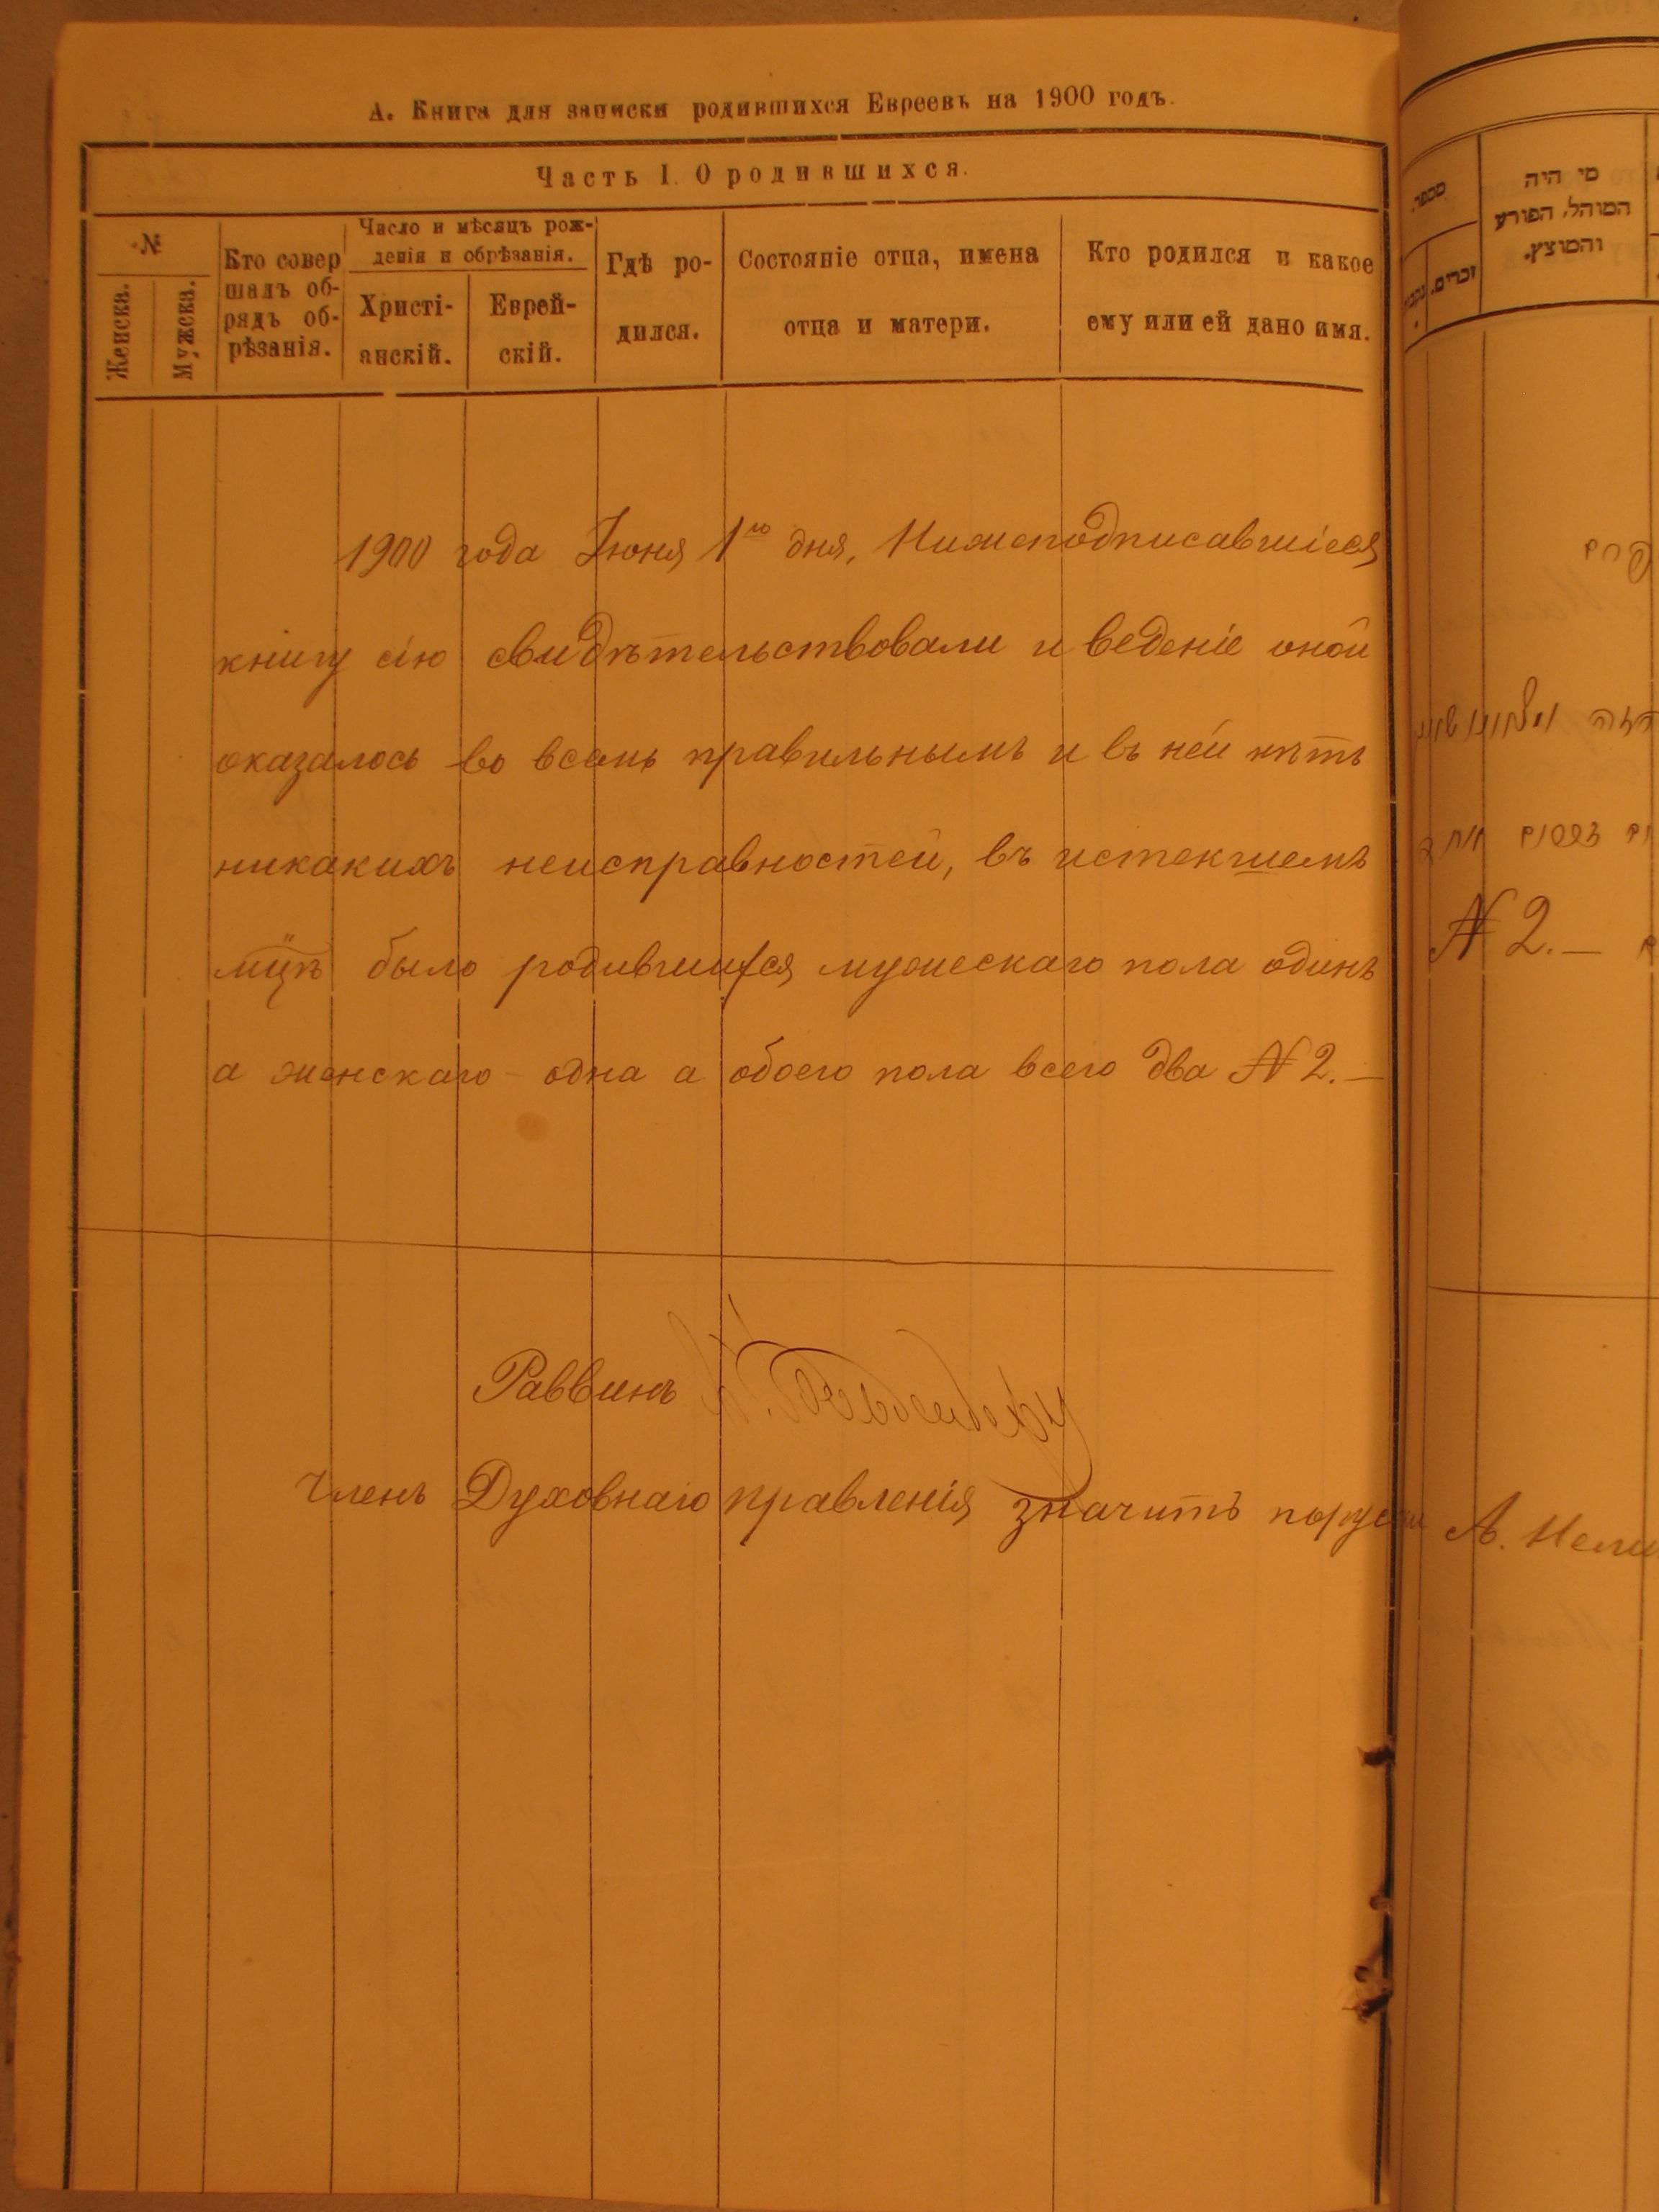 А. Книга для записки родившихся Евреевъ на 1900 годъ.
Часть I. О родившихся.
№
Женска.
Мужска.
Кто совер
шалъ об-
рядъ об-
рѣзанія.
Число и мѣсяцъ рож-
денія и обрѣзанія.
Христі-
анскій.
Еврей-
скій.
Гдѣ ро-
дился.
Состояніе отца, имена
отца и матери.
Кто родился и какое
ему или ей дано имя.
1900 года Іюня 1го дня, Нижеподписавшіеся
книгу сію свидѣтельствовали и веденіе оной
оказалось во всемъ правильнымъ и въ ней нѣтъ
никакихъ неисправностей, въ истекшемъ
мцѣ было родившихся мужескаго пола одинъ
а женскаго - одна а обоего пола всего два № 2.—
Раввинъ
Членъ Духовнаго правленія значитъ
מספר.
זכרים.
מי היה
המוהל, הפורע
והמוצץ.
№ 2.—
А.